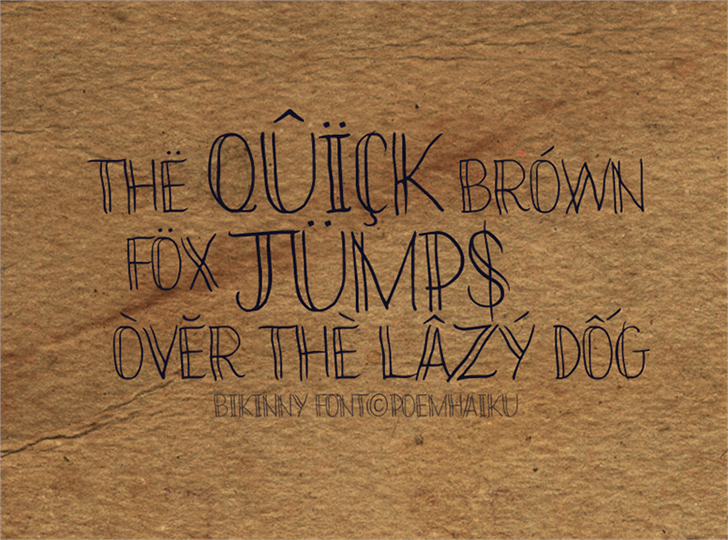 THË QÛÏÇK BRÓWN
FÖX JÜMP$
ÒVĚR THÈ LÂZÝ DỐG
BIKINNY FONT©POEMHAIKU